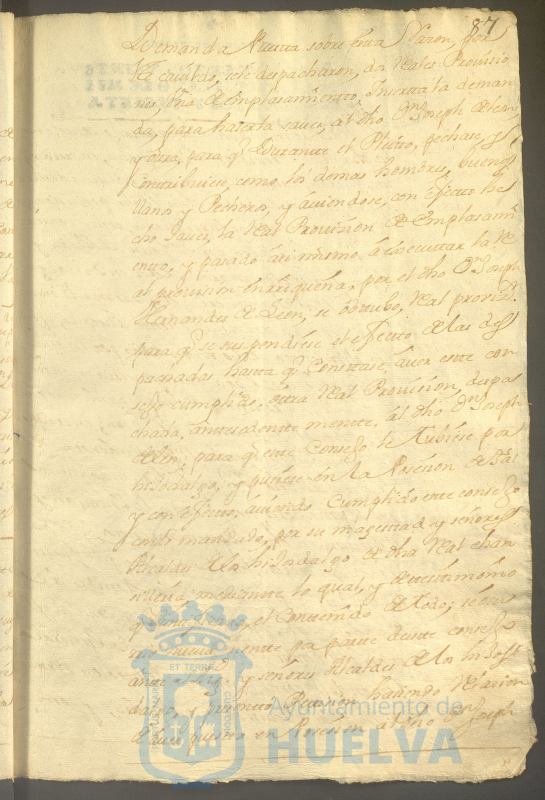 87
Demanda Nueva sobre esta Razon, por
se despacharon, dos Reales Provisio
nes, Una de emplasamiento, Inserta la deman
da, para hacerla saver, al dho Dn Joseph de Leon
y otra, para q Durante el Pleito, pechase, y
Contribuiese, como los demas hombres, buenos
llanos y Pecheros, y aviendose, con efecto he
cho saver, la Real Provision de Emplasami
ento, y pasado asi mismo a executar la Re
al provision enrriqueña, por el dho Dn Joseph
Hernandes de Leon, se obtubo, Real proviz.n
para q se suspendiese el efecto de las des
pachadas hasta q Constase, aver este con
sejo cumplido, otra Real Provision, despa
chada, antecedentemente, al dho Dn Joseph
de Leon; para q este Consejo le tubiese por
hijodalgo, y pusiese en la Posesion de tal
y con efecto, aviendo Cumplido este consejo
con lo mandado, por su magestad y señores
Alcaldes de los hijosdalgo de dha Real chan
mediante lo qual, y de testimonio
el Contenido de todo; se
nueva mente por parte deste consejo
ante y señores Alcaldes de los hijos
dalgo, y Peticion haciendo Relacion
de aver puesto en Posesion al dho Dn Joseph
ET TERRAE
Ayuntamiento de
HUELVA